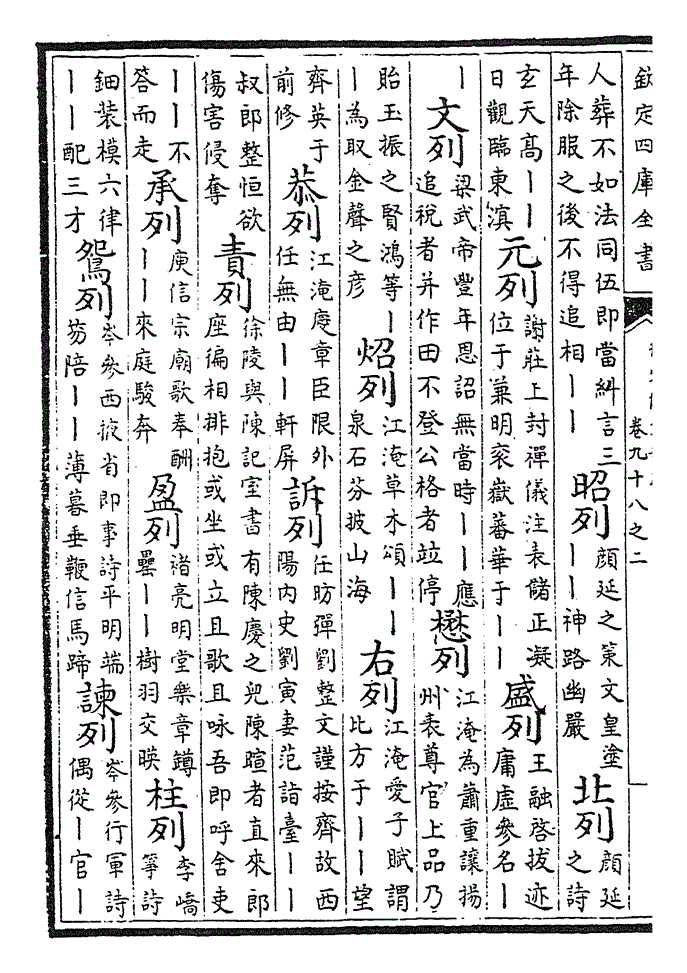 欽定四庫全書
卷九十八之二
人葬不如法同伍即當糾言三年除服之後不得追相丨丨 昭列 顔延之策文皇塗丨丨神路幽嚴 北列 顔延之詩
玄天高丨丨日觀臨東溟 元列 謝莊上封禪儀注表儲正凝位于兼明衮嶽蕃華于丨丨 盛列 王融啓拔迹庸虚參名丨
丨 文列 梁武帝豐年恩詔無當時丨丨應追税者并作田不登公格者竝停 懋列 江淹為蕭重讓揚州表尊官上品乃
貽玉振之賢鴻等丨丨為取金聲之彦 炤列 江淹草木頌丨丨泉石芬披山海 右列 江淹愛子賦謂比方于丨丨望
齊英于前修 恭列 江淹慶章臣限外任無由丨丨軒屏 訴列 任昉彈劉整文謹按齊故西陽内史劉寅妻范詣臺丨丨
叔郎整恒欲傷害侵奪 責列 徐陵與陳記室書有陳慶之兒陳暄者直來郎座徧相排抱或坐或立且歌且咏吾即呼舍吏
丨丨不答而走 承列 庾信宗廟歌奉酬丨丨來庭駿奔 盈列 褚亮明堂樂章鐏罍丨丨樹羽交暎 柱列 李嶠箏詩
鈿装模六律丨丨配三才 鴛列 岑參西掖省即事詩平明端笏陪丨丨薄暮垂鞭信馬蹄 諫列 岑參行軍詩偶從丨官丨